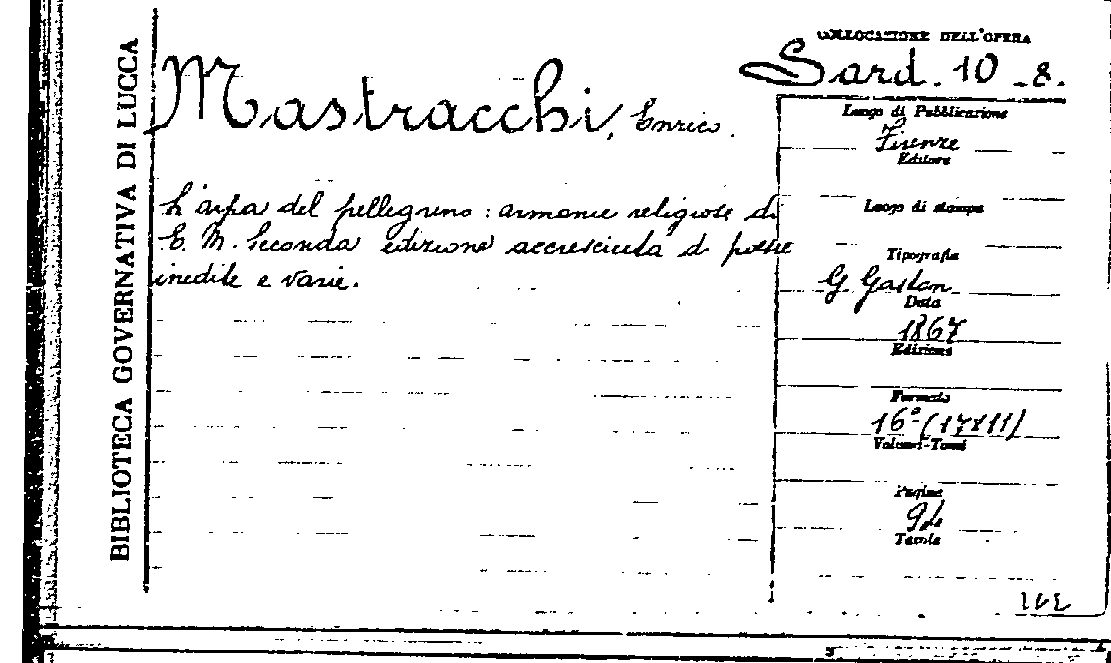 BIBLIOTECA GOVERNATIVA DI LUCCA
COLLOCAZIONE DELL'OPERA
Sard. 10 - 8.
Mastracchi, Enrico.
L'arpa del pellegrino: armonie religiose di
E. M. Seconda edizione accresciuta di poesie
inedite e varie.
Luogo di Pubblicazione
Firenze
Editore
Luogo di stampa
Tipografia
G Gaston
Data
1867
Edizione
Formato
16º (17X11)
Volumi-Tomi
Pagine
Tavole